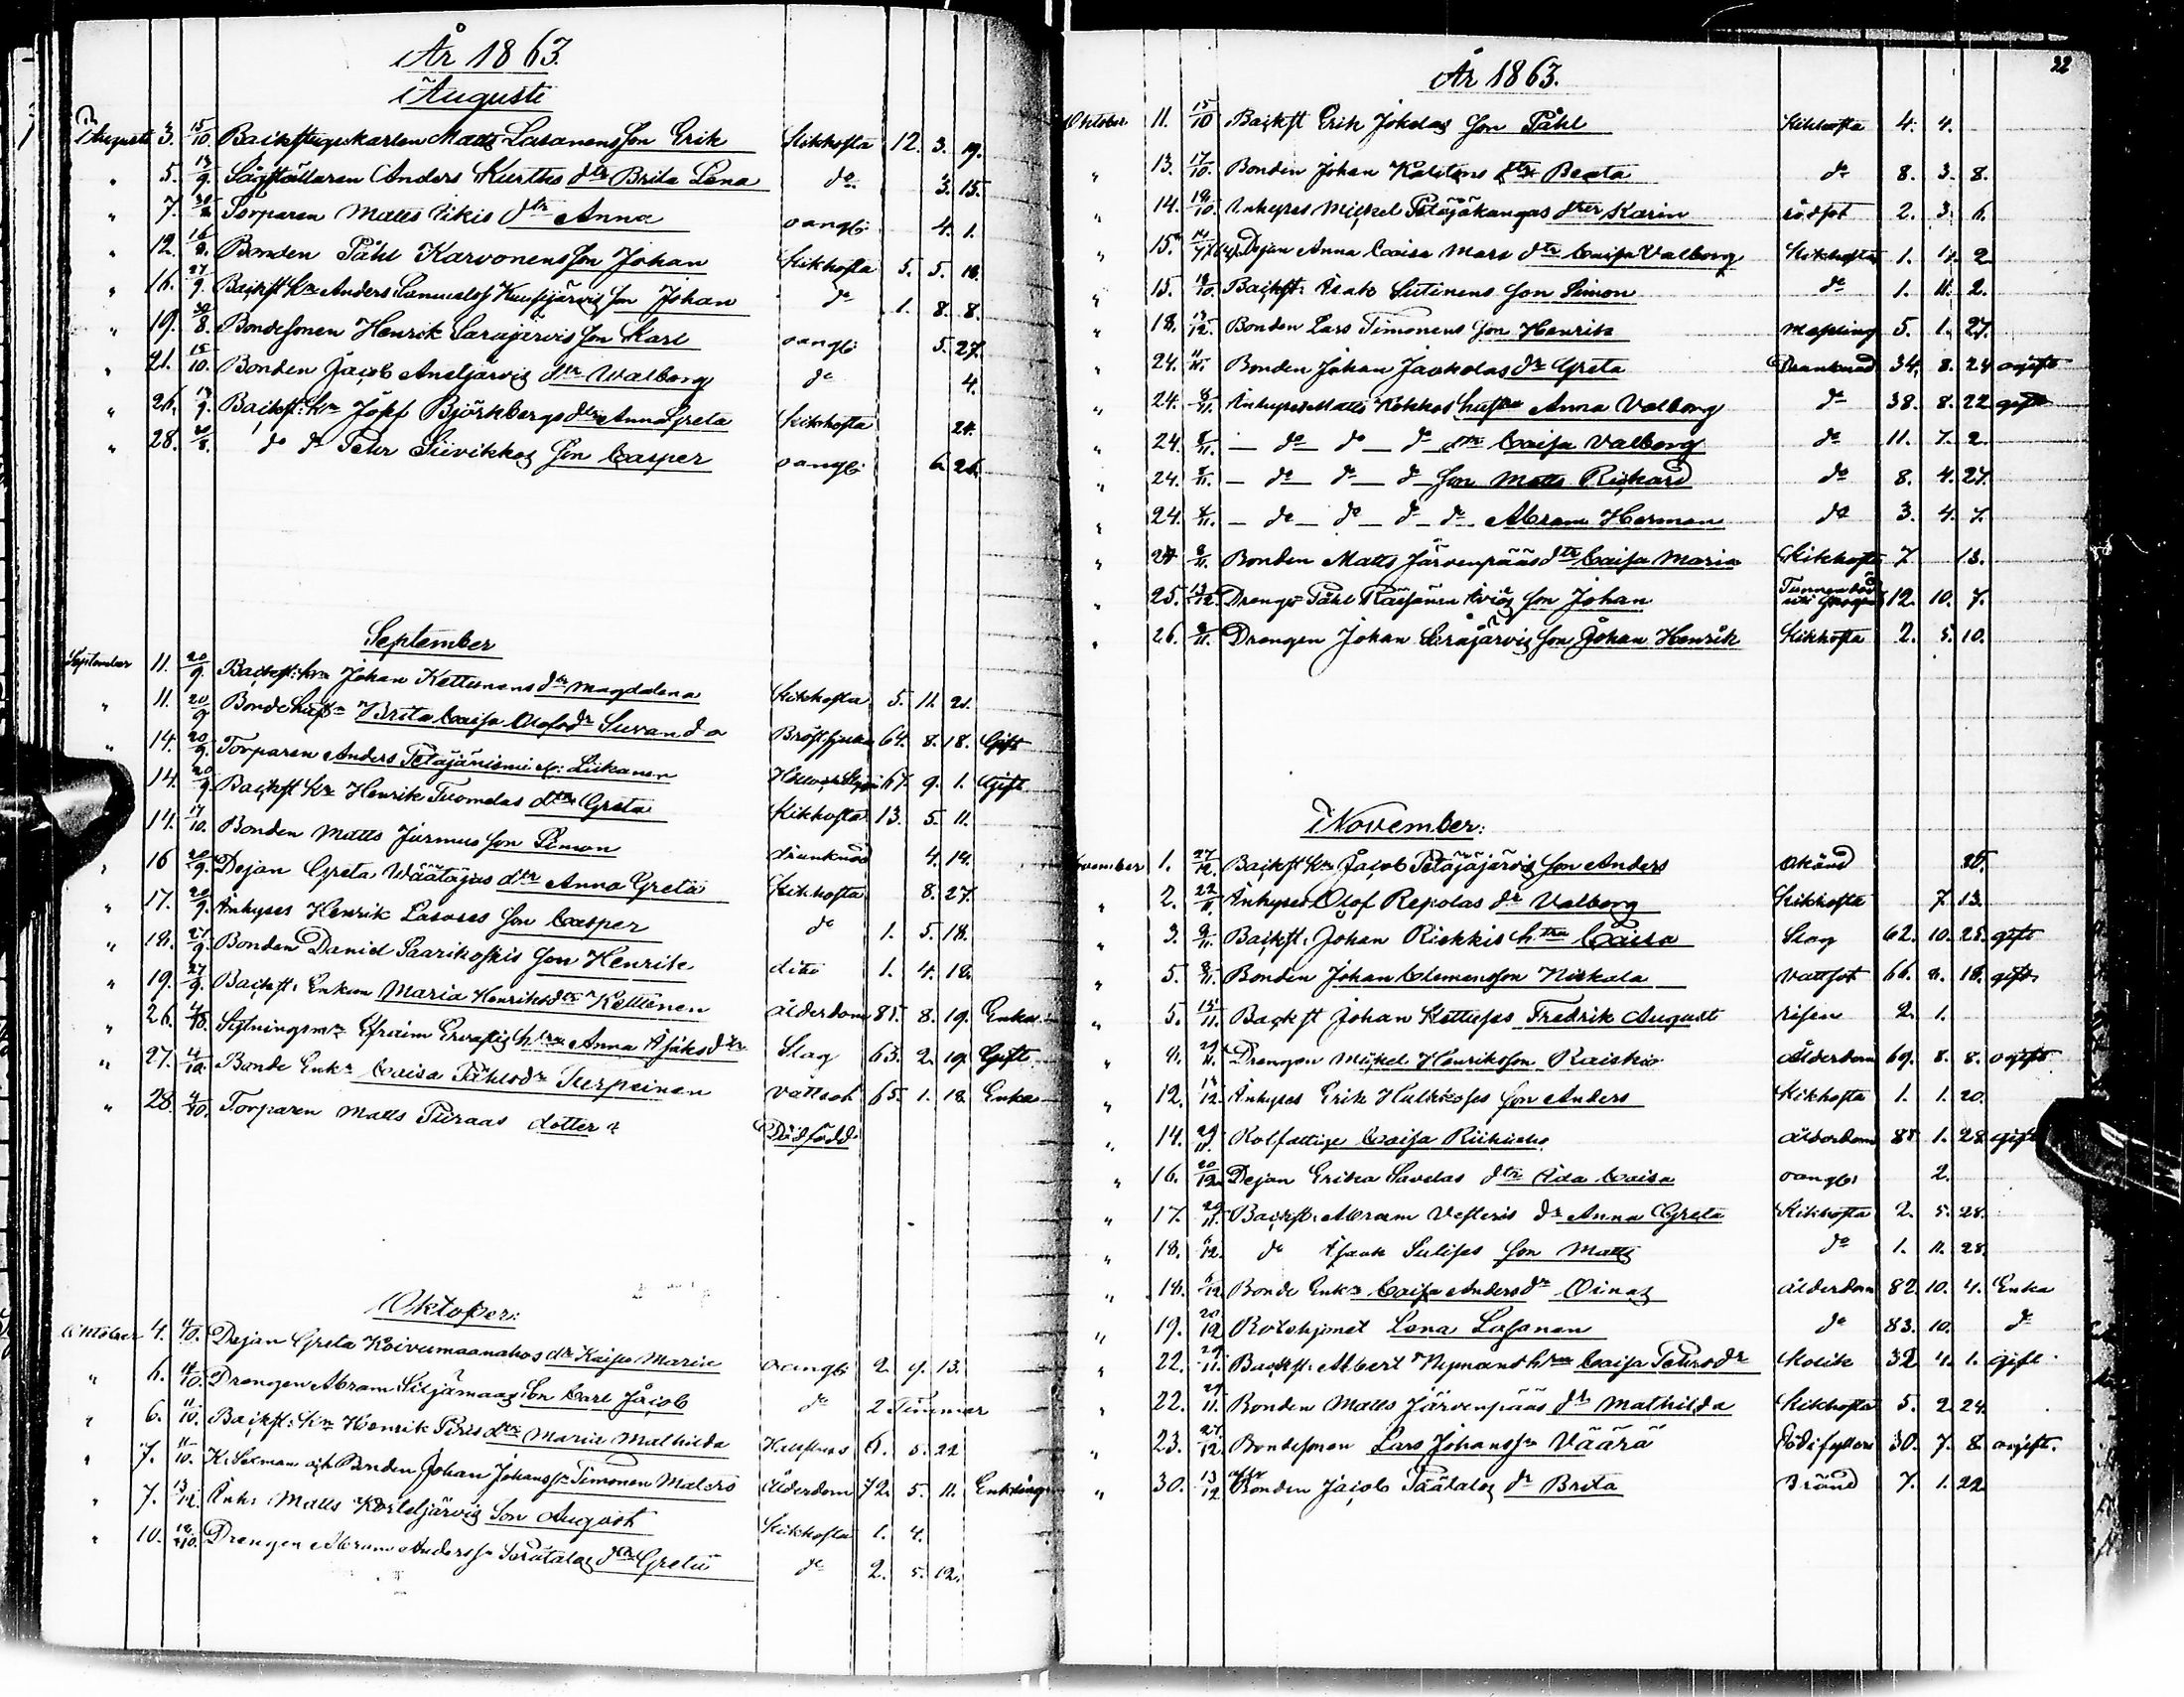 År 1863.
i Augusti
i Augusti 3. 15/10. Backstugukarlen Matts Lasanens son Erik Kikhosta 12. 3. 19.
" 5. 13/9. Sågställaren Anders Kurths dtr Brita Lena do 3. 15.
" 7. Torparen Matts Ukis dtr Anna oangf: 4. 1.
" 12. 16/8. Bonden Påhl Karvonens son Johan Kikhosta 5. 5. 18.
" 16. 27/9. Backst kn Anders Samuels Kuusijärvis son Johan do 1. 8. 8.
" 19. 30/8. Bondesonen Henrik Sarajärvis son Karl oangf: 5. 27.
" 21. 18/10. Bonden Jacob Aneljärvis dtr Walborg do 4.
" 26. 13/9. Backst: kn Josef Björkbergs dtr Anna Greta Kikhosta 24.
" 28. 30/8. do do Petter Siivikkos son Casper oangf: 6. 26.
September
September 11. 20/9. Backst: kn Johan Kettunens dtr Magdalena Kikhosta 5. 11. 21.
" 11. 20/9 Bondehust Brita Caisa Olofsdr Suvanda Bröstsjuka 64. 8. 18. Gift
" 14. 20/9. Torparen Anders Petäjäniemi el: Liikanen 67. 9. 1. Gift
14. 20/9 Backst kn Henrik Tuomelas dtr Greta Kikhosta 13. 5. 11.
14. 17/10. Bonden Matts Jurmus son Simon drunknad 4. 14.
" 16 20/9. Dejan Greta Wäätäjas dtr Anna Greta Kikhosta 8. 27.
" 17. 20/9. Inhyses Henrik Lasoses son Casper do 1. 5. 18.
" 18. 27/9 Bonden Daniel Saarikoskis son Henrik dito 1. 4. 18.
" 19. 27/9. Backst: Enkan Maria Henriksdtr Kettunen ålderdom 85. 8. 19. Enka
" 26. 4/10. Sytningsmn Efraim Ervastis htru Anna Isaksdtr Slag 63. 2. 19. Gift.
" 27. 4/10. Bonde Enkn Caisa Påhlsdr Turpeinen vattsot 65. 1. 18. Enka
" 28. 4/10. Torparen Matts Piiraas dotter Dödfödd
Oktober:
Oktober 4. 4/10. Dejan Greta Koivumaanahos dtr Kaisa Maria oangf: 2. 9. 13.
" 6. 11/10. Drengen Abram Siljämaas son Carl Jacob do 2 Timmar
" 6. 11/10. Backst: kn Henrik Piris dtr Maria Mathilda 6. 5. 22
" 7. 11/10. K. Sexman och Bonden Johan Johanss: Timonen Matero Ålderdom 72. 5. 11. Enkling
" 7. 13/12. Inh: Matts Korteljärvis son August Kikhosta 1. 4.
" 10. 18/10. Drengen Abram Anderss: Sorutalas dtr Greta do 2. 5. 12.
22
År 1863.
Oktober 11. 15/10 Backst Erik Jokelas son Påhl Kikhosta 4. 4.
" 13. 17/10. Bonden Johan Kalitens dtr Beata do 8. 3. 8.
" 14. 18/10. Inhyses Mickel Petäjäkangas dtr Karin rödsot 2. 3. 6.
" 15. Dejan Anna Caisa Mars dtr Caisa Valborg Kikhosta 1. 11. 2
" 15. 18/10. Backst: Isak Sutinens son Simon do 1. 11. 2.
" 18. 13/12. Bonden Lars Timonens son Henrik messling 5. 1. 27.
" 24. 8/11. Bonden Johan Jaakolas dr Greta Drunknad 34. 8. 24 ogift
" 24. 8/11. Inhyses Matts Kokkos hustru Anna Valborg do 38. 8. 22 gift
" 24. 8/11. — do — do — do dtr Caisa Valborg do 11. 7. 2.
" 24. 8/11. — do — do — do son Matts Rickard do 8. 4. 27.
" 24. 8/11. — do — do — do do Abram Herman do 3. 4. 7.
" 24 8/11. Bonden Matts Järvenpääs dtr Caisa Maria Kikhosta 7 13.
" 25. 13/12. Dreng Påhl Räisänen son Johan 12. 10. 7.
" 26. 8/11. Drengen Johan Särajärvis son Johan Henrik Kikhosta 2. 5. 10.
i November:
November 1. 27/12. Backst kn Jacob Petäjäjärvis son Anders Okänd 25.
" 2. 22/11. Inhyses Olof Repolas dr Valborg Kikhosta 7 13.
" 3. 8/11. Backst: Johan Riekkis htru Caisa Slag 62. 10. 25. gift
" 5. 8/11. Bonden Johan Clemensson Niskala Vattsot 66. 8. 18. gift.
" 5. 15/11. Backst Johan Kettuses Fredrik August risen 2. 1.
" 8. 29/11. Drengen Mickel Henriksson Raiskio ålderdom 69. 8. 8. ogift
" 12. 13/12. Inhyses Erik Hulkoses son Anders Kikhosta 1. 1. 20.
" 14. 29/11. Rotfattige Caisa ålderdom 85. 1. 28. gift
" 16. 20/12. Dejan Erika Savelas dtr Ida Caisa oangf: 2.
" 17. 29/11. Backst: Abram Vesteris dr Anna Greta Kikhosta 2. 5. 28.
" 18. 6/12. do Isaak Sulises son Matts do 1. 11. 28.
" 18. 6/12 Bonde Enkn Caisa Andersdr Oinas ålderdom 82. 10. 4. Enka
" 19. 20/12 Rotehjonet Lena Lasanen do 83. 10. do
" 22. 29/11. Backst. Albert Nymans htru Caisa Petersdr Kolik 32 4. 1. gift.
" 22. 29/11. Bonden Matts Järvenpääs dr Mathilda Kikhosta 5. 2 24.
" 23. 27/12. Bondesonen Lars Johanss: Väärä 30. 7. 8. ogift.
" 30. 13/12 Bonden Jacob Päätalos dr Brita Bränd 7. 1. 22